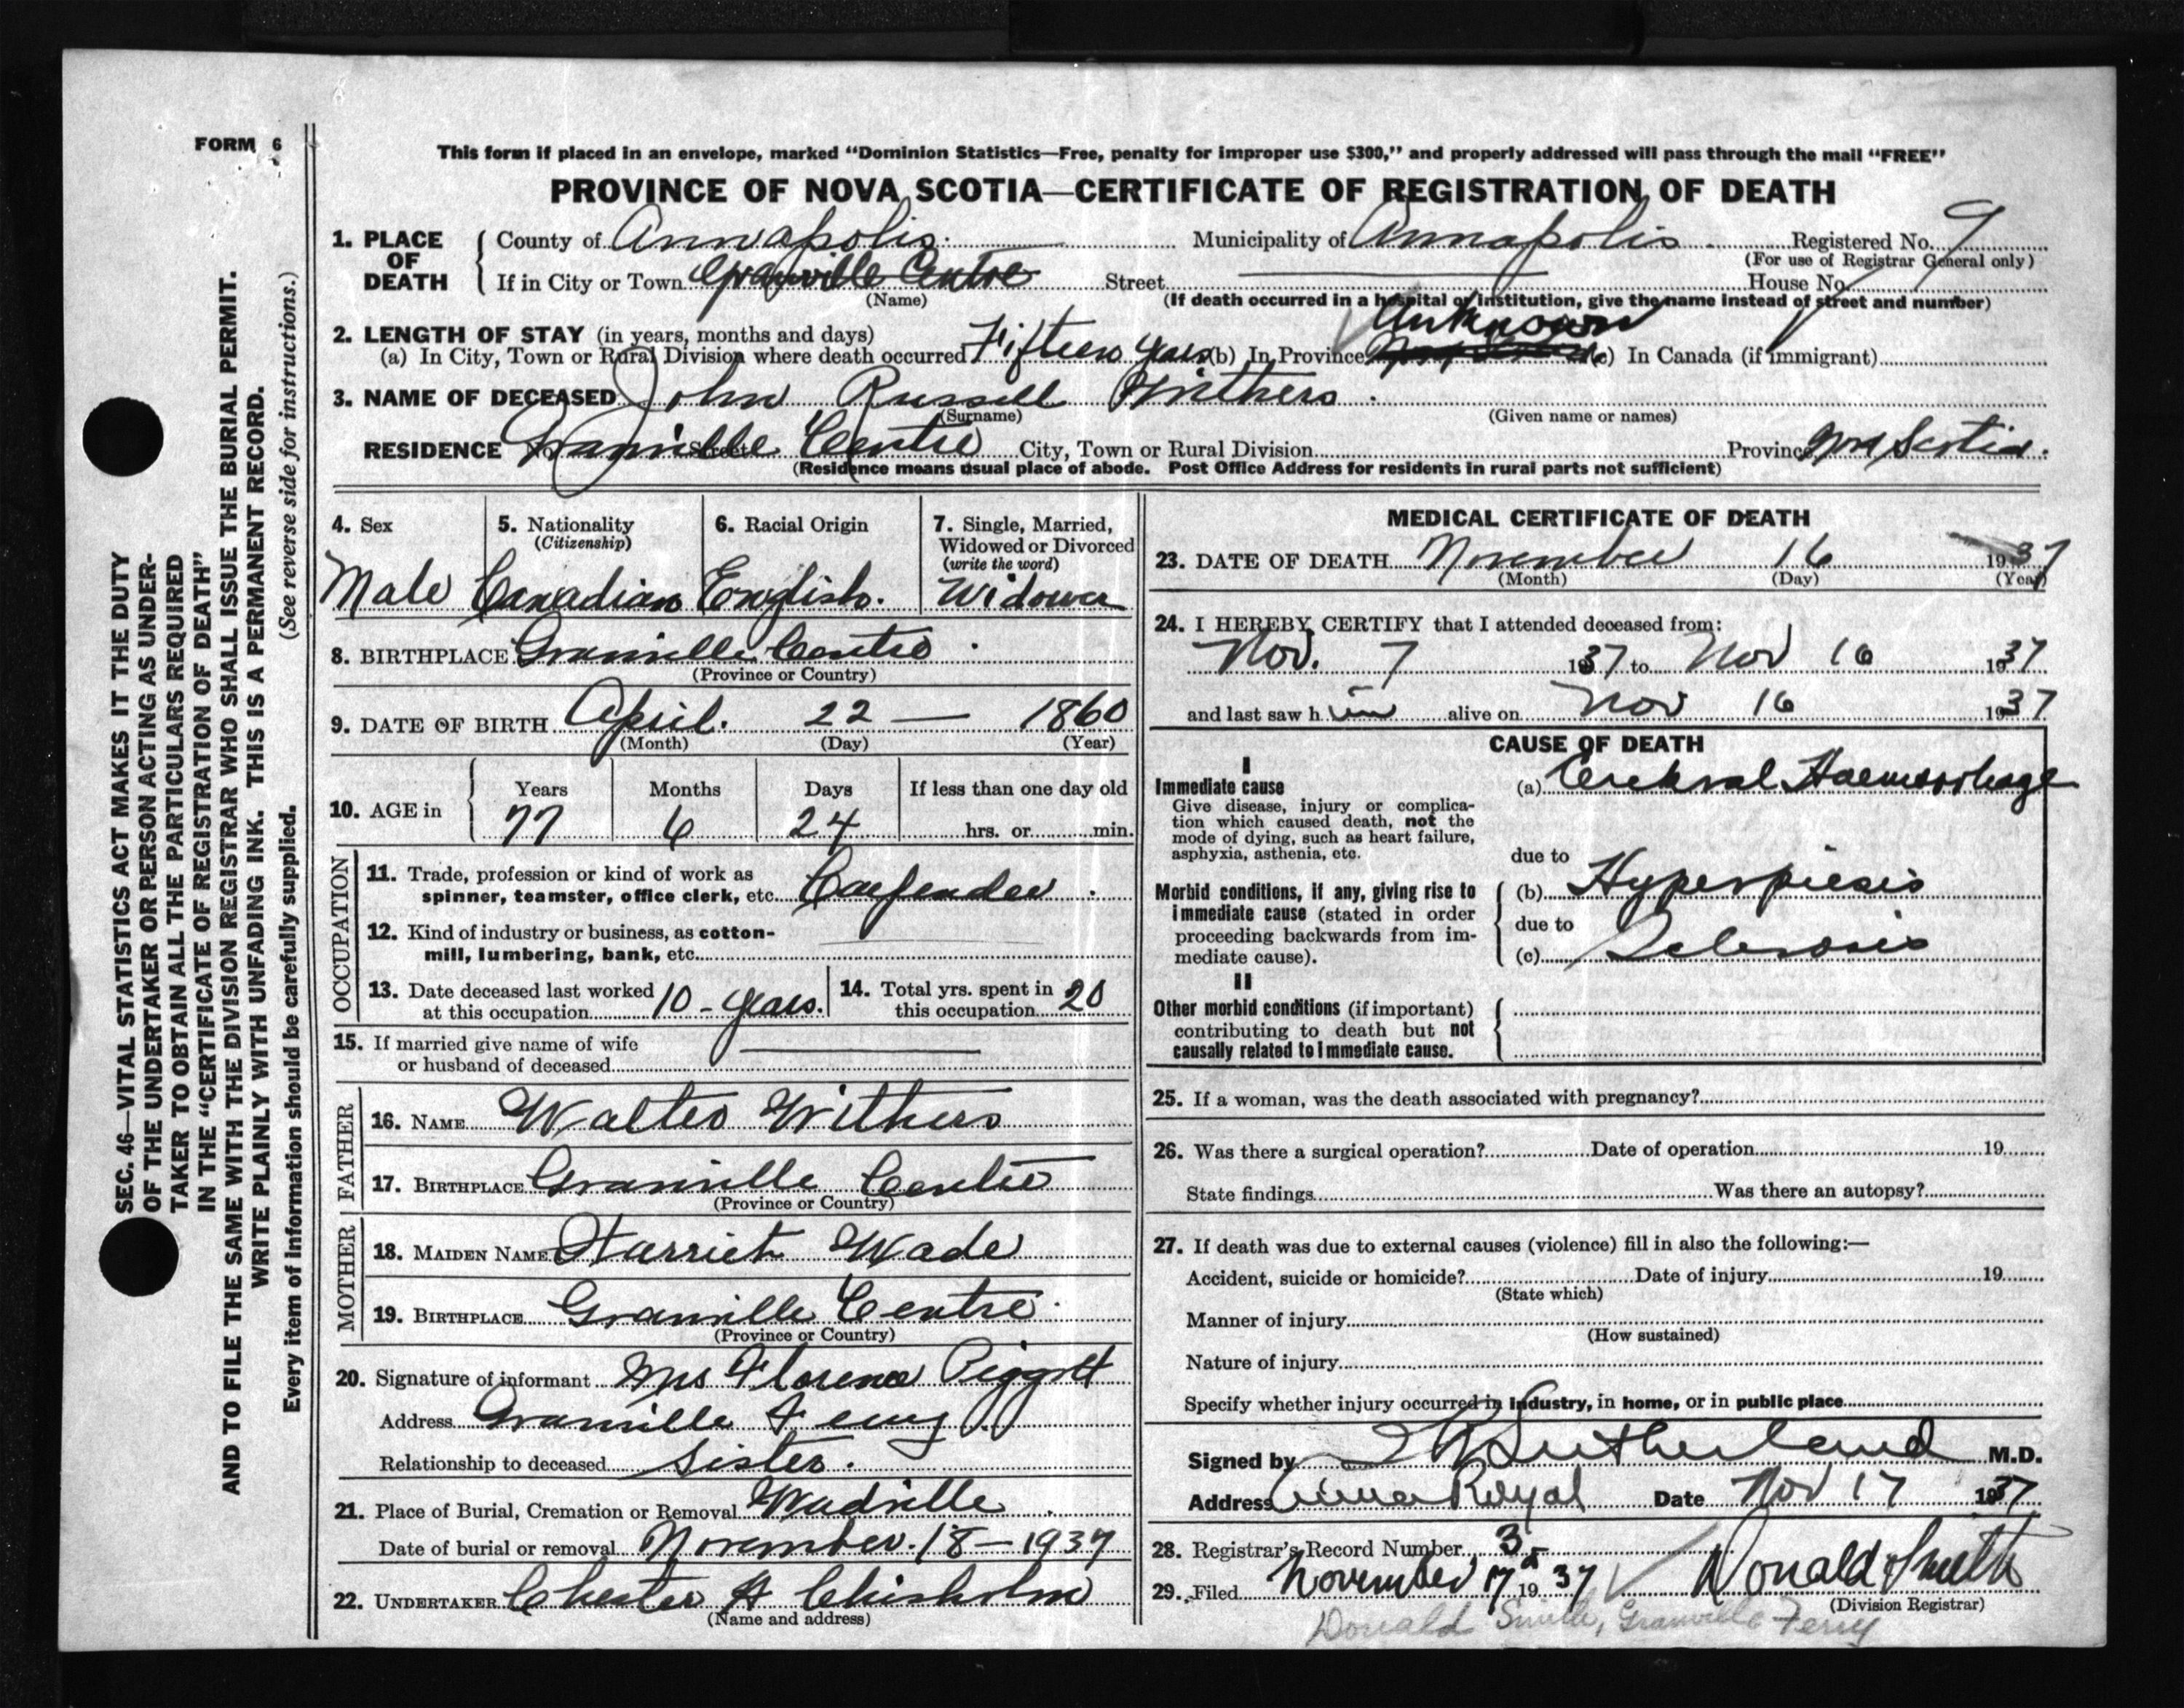 FORM 6
This form if placed in an envelope, marked “Dominion Statistics—Free, penalty for improper use $300,” and properly addressed will pass through the mail “FREE”
PROVINCE OF NOVA SCOTIA—CERTIFICATE OF REGISTRATION OF DEATH
1. PLACE OF DEATH County of Annapolis Municipality of Annapolis Registered No. 9
(For use of Registrar General only)
If in City or Town Granville Centre Street House No.
(Name) (If death occurred in a hospital or institution, give the name instead of street and number)
2. LENGTH OF STAY (in years, months and days) Unknown
(a) In City, Town or Rural Division where death occurred Fifteen years (b) In Province (c) In Canada (if immigrant)
3. NAME OF DECEASED John Russell Withers
(Surname) (Given name or names)
RESIDENCE No. Street Granville Centre City, Town or Rural Division Province Nova Scotia.
(Residence means usual place of abode. Post Office Address for residents in rural parts not sufficient)
4. Sex Male
5. Nationality (Citizenship) Canadian
6. Racial Origin English.
7. Single, Married, Widowed or Divorced (write the word) Widower
8. BIRTHPLACE Granville Centre
(Province or Country)
9. DATE OF BIRTH April. 22 — 1860
(Month) (Day) (Year)
10. AGE in Years 77 Months 6 Days 24 If less than one day old hrs. or min.
OCCUPATION
11. Trade, profession or kind of work as
spinner, teamster, office clerk, etc. Carpenter
12. Kind of industry or business, as cotton-
mill, lumbering, bank, etc.
13. Date deceased last worked at this occupation 10 - years.
14. Total yrs. spent in this occupation 20
15. If married give name of wife
or husband of deceased
FATHER
16. NAME Walter Withers
17. BIRTHPLACE Granville Centre
(Province or Country)
MOTHER
18. MAIDEN NAME Harriet Wade
19. BIRTHPLACE Granville Centre
(Province or Country)
20. Signature of informant Mrs Florence Piggott
Address Granville Ferry
Relationship to deceased Sister.
21. Place of Burial, Cremation or Removal Wadville
Date of burial or removal November. 18 — 1937
22. UNDERTAKER Chester A Chisholm
(Name and address)
MEDICAL CERTIFICATE OF DEATH
23. DATE OF DEATH November 16 1937
(Month) (Day) (Year)
24. I HEREBY CERTIFY that I attended deceased from:
Nov. 7 1937 to Nov 16 1937
and last saw h im alive on Nov 16 1937
CAUSE OF DEATH
I
Immediate cause (a) Cerebral Haemorrhage
Give disease, injury or complica-
tion which caused death, not the
mode of dying, such as heart failure,
asphyxia, asthenia, etc.
due to
Morbid conditions, if any, giving rise to (b) Hyperpiesis
immediate cause (stated in order due to
proceeding backwards from im-
mediate cause). (c) Sclerosis
II
Other morbid conditions (if important)
contributing to death but not
causally related to immediate cause.
25. If a woman, was the death associated with pregnancy?
26. Was there a surgical operation? Date of operation 19
State findings Was there an autopsy?
27. If death was due to external causes (violence) fill in also the following:—
Accident, suicide or homicide? Date of injury 19
(State which)
Manner of injury
(How sustained)
Nature of injury
Specify whether injury occurred in industry, in home, or in public place
Signed by Sutherland M.D.
Address Anna Royal Date Nov 17 1937
28. Registrar's Record Number 35
29. Filed November 17 1937 Donald Smith
(Division Registrar)
Donald Smith, Granville Ferry
SEC. 46—VITAL STATISTICS ACT MAKES IT THE DUTY
OF THE UNDERTAKER OR PERSON ACTING AS UNDER-
TAKER TO OBTAIN ALL THE PARTICULARS REQUIRED
IN THE “CERTIFICATE OF REGISTRATION OF DEATH”
AND TO FILE THE SAME WITH THE DIVISION REGISTRAR WHO SHALL ISSUE THE BURIAL PERMIT.
WRITE PLAINLY WITH UNFADING INK. THIS IS A PERMANENT RECORD.
Every item of information should be carefully supplied. (See reverse side for instructions.)